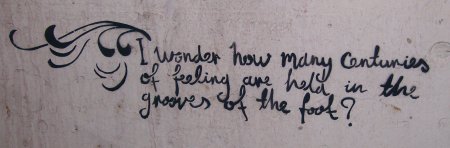 I wonder how many centuries
of feeling are held in the
grooves of the foot?